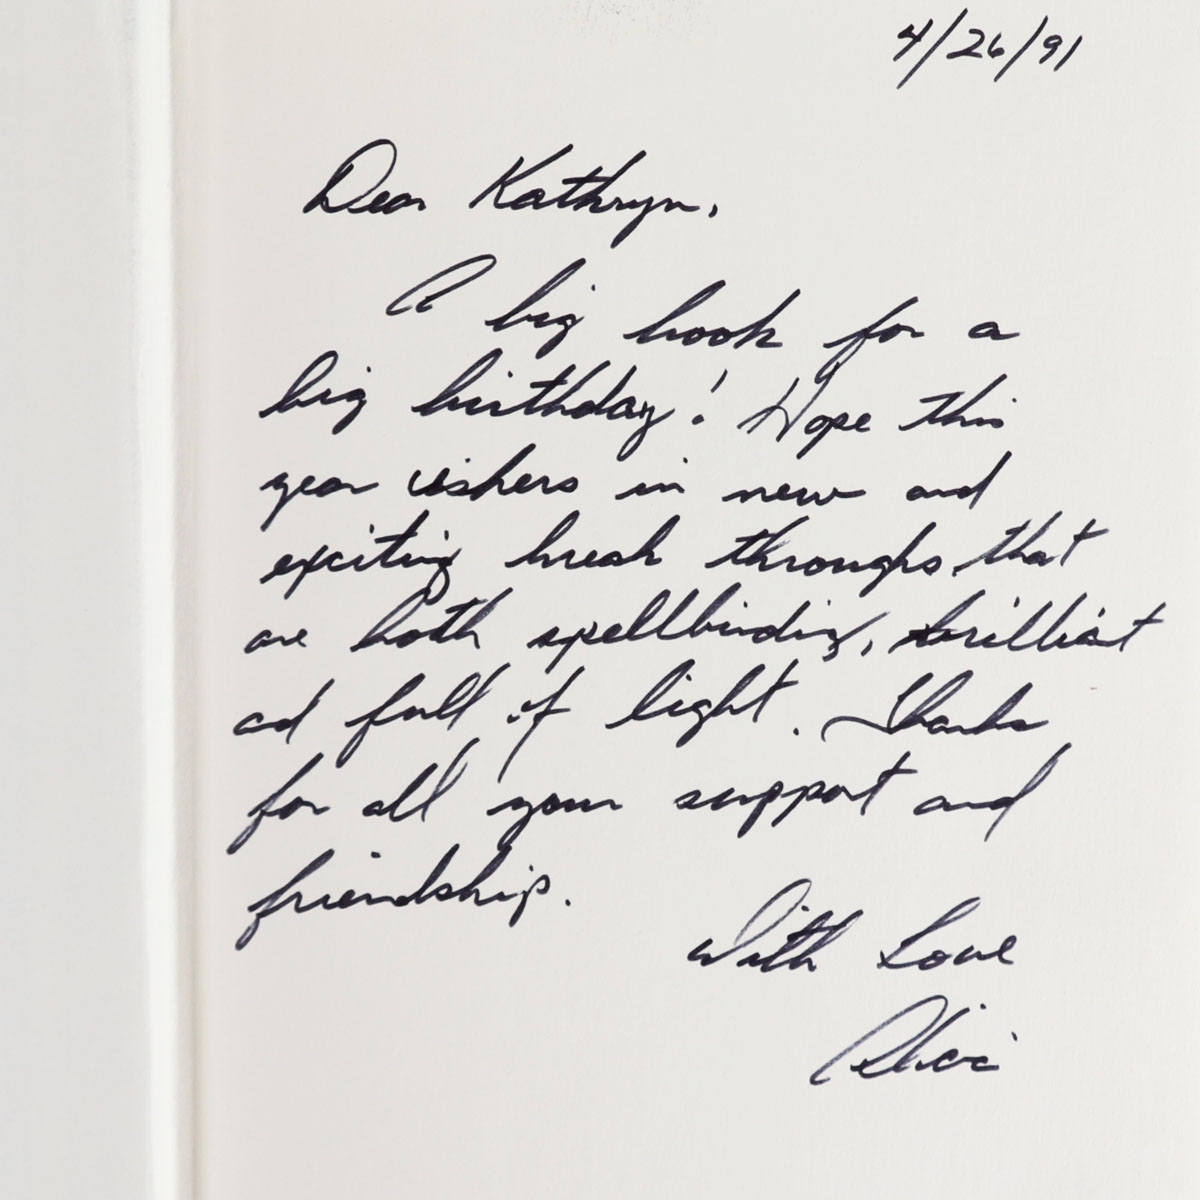 4/26/91
Dear Kathryn,
A big book for a
big birthday! Hope this
year ushers in new and
exciting break throughs that
are both spellbinding, brilliant
ad full of light. Thanks
for all your support and
friendship.
With Love
Alicia